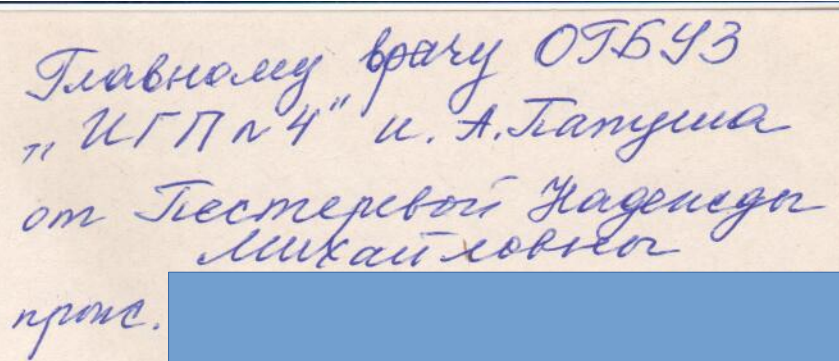 Главному врачу ОГБУЗ
„ИГП №4" И. А. Папуша
от Пестеревой Надежды
Михайловны
прож.